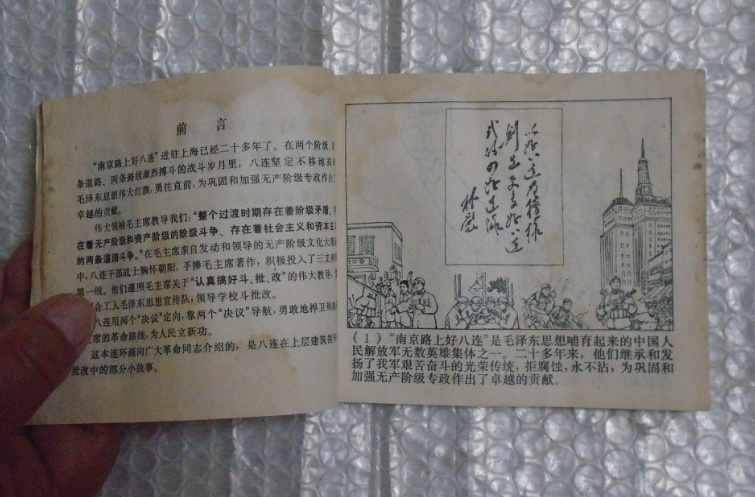 前言
“南京路上好八连”进驻上海已经二十多年了。在两个阶级、
条道路、两条路线激烈搏斗的战斗岁月里，八连坚定不移地高
毛泽东思想伟大红旗，勇往直前，为巩固和加强无产阶级专政作出
卓越的贡献。
伟大领袖毛主席教导我们：“整个过渡时期存在着阶级矛盾、
在着无产阶级和资产阶级的阶级斗争、存在着社会主义和资本主
的两条道路斗争。”在毛主席亲自发动和领导的无产阶级文化大
中，八连干部战士胸怀朝阳，手捧毛主席著作，积极投入了三支
第一线。他们遵照毛主席关于“认真搞好斗、批、改”的伟大教导，
合工人毛泽东思想宣传队，领导学校斗批改。
八连用两个“决议”定向，靠两个“决议”导航，勇敢地捍卫和
席的革命路线，为人民立新功。
这本连环画向广大革命同志介绍的，是八连在上层建筑领
批改中的部分小故事。
以八连为榜样
创造更多的八连
式的四好连队
林彪
(1)“南京路上好八连”是毛泽东思想哺育起来的中国人
民解放军无数英雄集体之一。二十多年来，他们继承和发
扬了我军艰苦奋斗的光荣传统，拒腐蚀，永不沾，为巩固和
加强无产阶级专政作出了卓越的贡献。